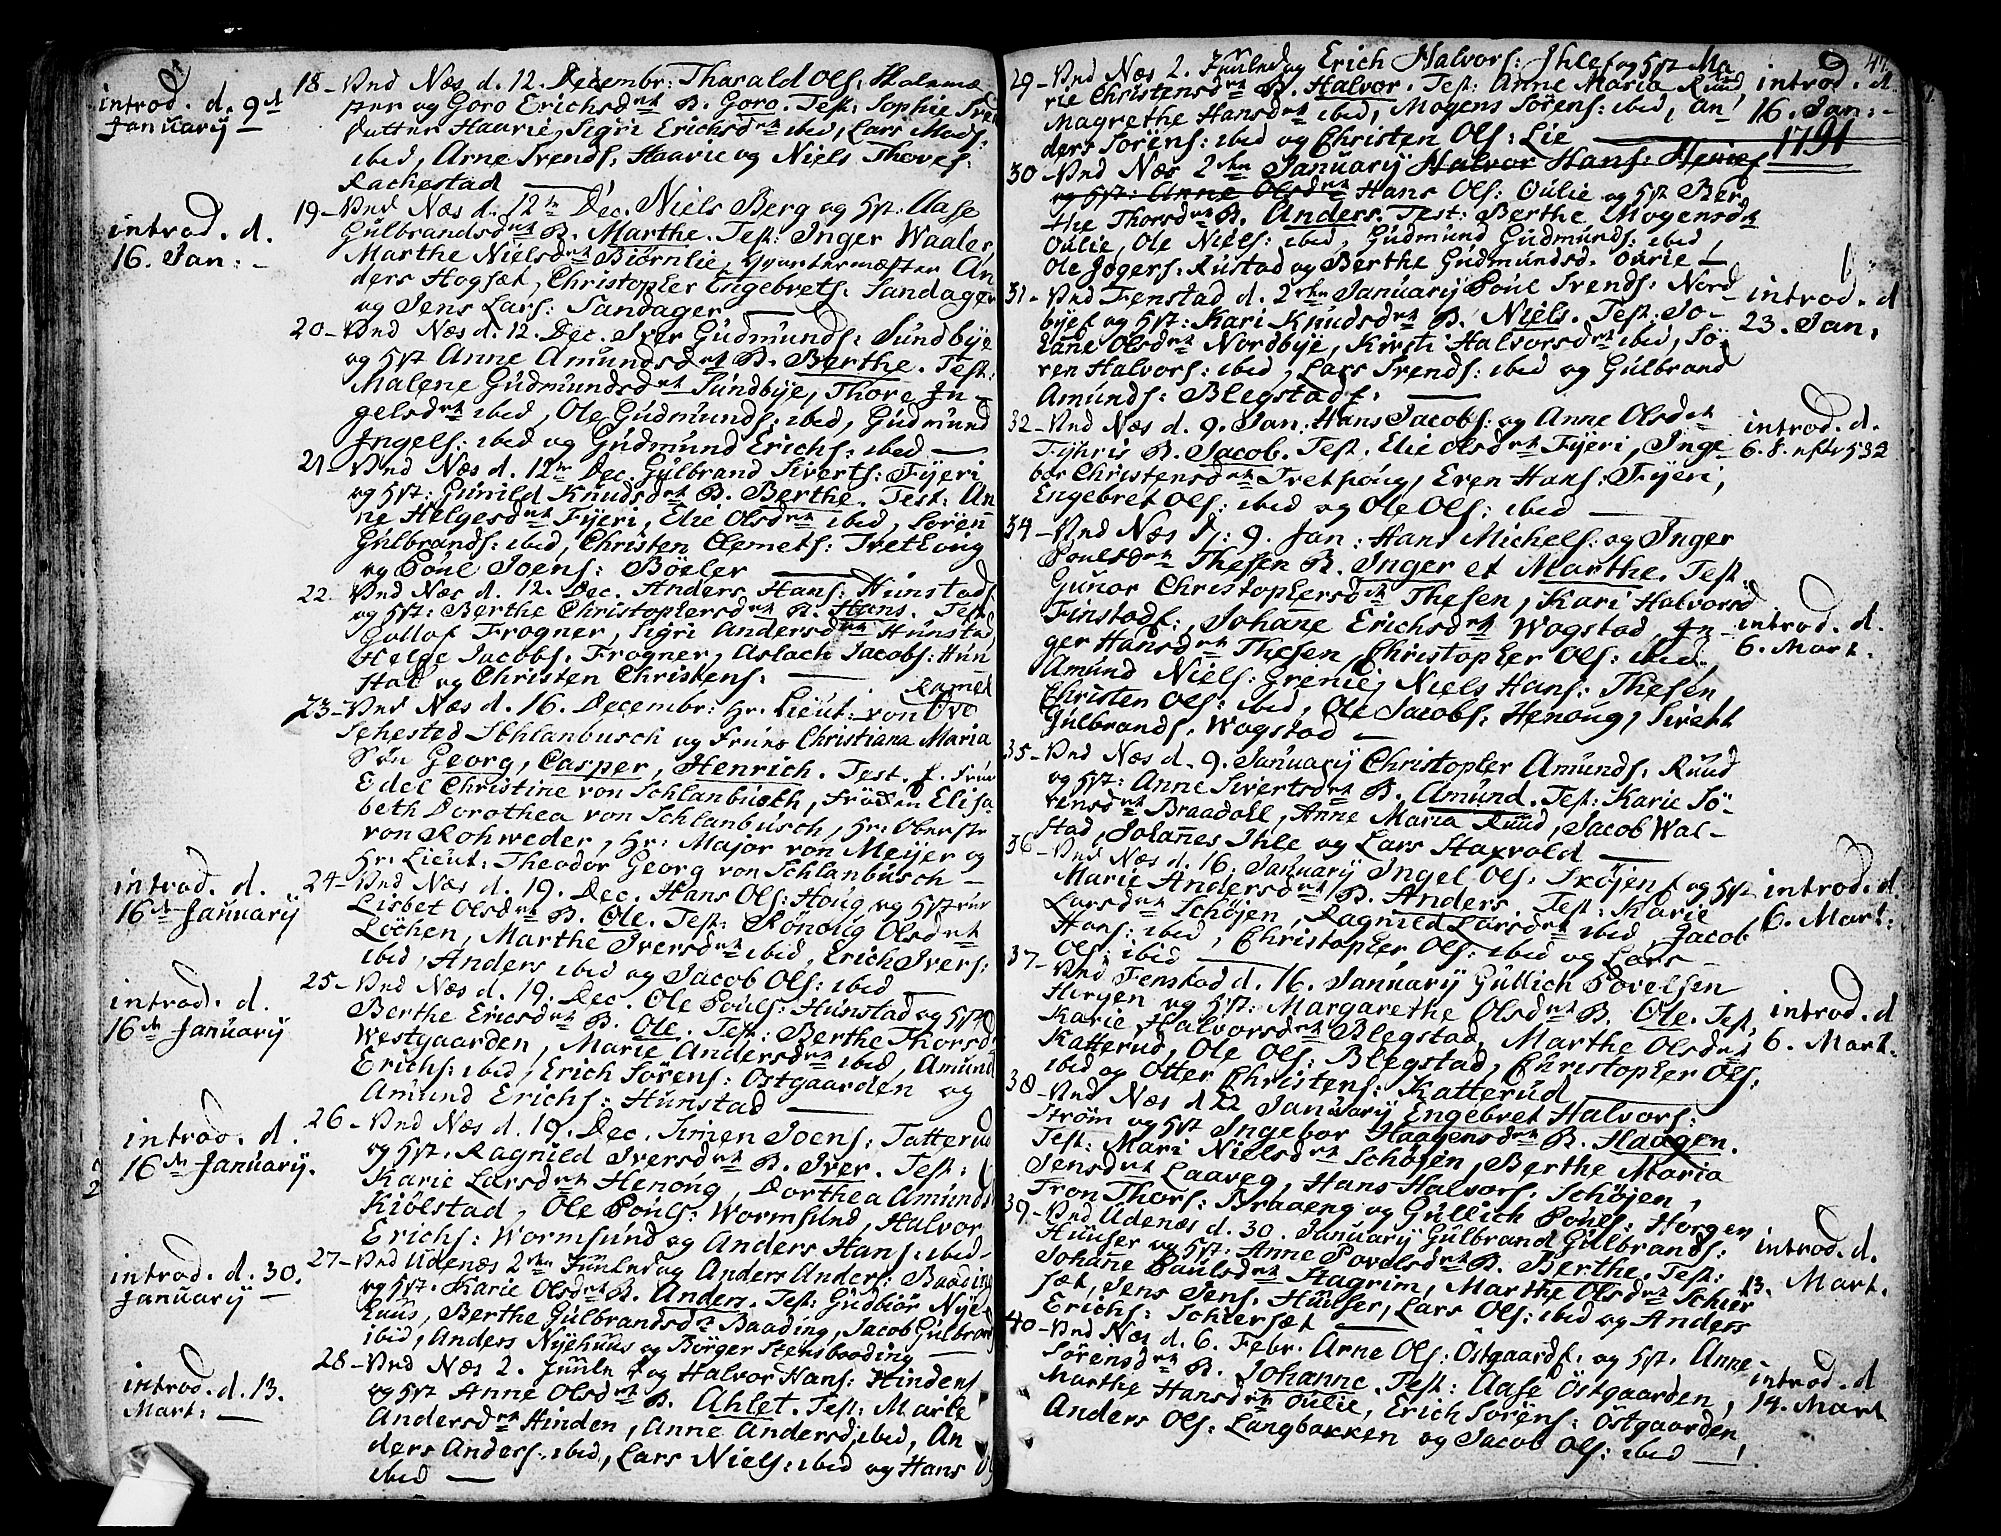 introd. d. 9de
January
18 Und Næs d. 12. Decembr: Tharald Ols: Holemæ
ster og Goro Erichsdtr B. Goro. Test: Sophie Svend
datter Haarie, Sigri Erichsdtr ibid, Lars Mads:
ibid, Arne Svends: Haarie og Niels Thoves:
Rachestad
introd. d.
16. Jan:
19 Und Næs d. 12te Dec. Niels Berg og Hst: Aase
Gulbrandsdtr B. Marthe. Test: Inger Waaler
Marthe Nielsdtr Biörnlie, Qvartermæster An
ders Hogsæt, Christopher Engebrets: Sandager
og Jens Lars: Sandager
20 Und Næs d. 12. Dec. Iver Gudmunds: Sundbye
og Hst Anne Amundsdtr B. Berthe. Test:
Malene Gudmundsdtr Sundbye, Thore In
gelsdtr ibid, Ole Gudmunds: ibid, Gudmund
Ingels: ibid og Gudmund Erichs: ibid
21 Und Næs d. 12te Dec. Gulbrand Siverts: Fyeri
og Hst: Gunild Knudsdtr B. Berthe. Test: An
ne Helgesdtr Fyeri, Elie Olsdtr ibid, Sören
Gulbrands: ibid, Christen Clemets: Tvethoug
og Poul Joens: Böeler
22 Und Næs d. 12. Dec. Anders Hans: Hunstad
og Hst: Berthe Christophersdtr B. Hans. Test
Gollof Frogner, Sigri Andersdtr Hunstad,
Helge Jacobs: Frogner, Aslach Jacobs: Hun
stad og Christen Christens:
Ramel
23 Und Næs d. 16. Decembr: Hr. Lieut: von Ove
Sehested Schlanbusch og Frues Christiana Maria
Sön Georg, Casper, Henrich. Test. f. Frue
Edel Christine von Schlanbusch, Fröken Elisa
beth Dorothea von Schlanbusch, Hr: Oberste
von Rohweder, Hr: Major von Meijer og
Hr: Lieut: Theodor Georg von Schlanbusch
introd. d.
16de January
24 Und Næs d. 19. Dec. Hans Ols: Houg og Hstrue
Lisbet Olsdtr B. Ole. Test: Rönoug Olsdtr
Löchen, Marthe Iversdtr ibid, Erich Ivers:
ibid, Anders ibid og Jacob Ols: ibid
introd. d.
16de January
25 Und Næs d. 19. Dec. Ole Pouls: Hunstad og Hst
Berthe Ericsdtr B. Ole. Test: Berthe Thorsd
Westgaarden, Marie Andersdtr ibid, Amund
Erichs: ibid, Erich Sörens: Östgaarden og
Amund Erichs: Hunstad
introd. d.
16de January.
26 Und Næs d. 19. Dec. Simen Joens: Tatterud
og Hst. Ragnild Iversdtr B. Iver. Test:
Karie Larsdtr Henoug, Dorthea Amunds
Kiölstad, Ole Pouls: Wormsund, Halvor
Erichs: Wormsund og Anders Hans: ibid
introd. d. 30.
January
27 Und Udenæs 2den Juuledag Anders Anders: Baading
og Hst. Karie Olsdtr B. Anders. Test: Gudbiör Nye
huus, Berthe Gulbrandsdtr Baading, Jacob Gulbrand
ibid, Anders Nyehuus og Börger Stensbaading
introd. d. 13.
Mart:
28 Und Næs 2. Juule dag Halvor Hans: Hindens
og Hst Anne Olsdtr B. Ahlet. Test: Marte
Andersdtr Hinden, Anne Andersd. ibid, An
ders Anders: ibid, Lars Niels: ibid og Hans
ibid
29 Und Næs 2. Juuledag Erich Halvors: Ihle og Hst Ma
rie Christensdtr B. Halvor. Test: Anne Maria Ruud
Magrethe Hansdtr ibid, Mogens Sörens: ibid, An
ders Sörens: ibid og Christen Ols: Lie
introd. d.
16. Jan:
1791
30 Und Næs 2den January Halvor Hans: Henies
og Hst: Anne Olsdtr Hans Ols: Oulie og Hst Ber
the Thorsdtr B. Anders. Test: Berthe Mogensdtr
Oulie, Ole Niels: ibid, Gudmund Gudmunds: ibid
Ole Jogers. Rustad og Berthe Gudmundsd. Ourie
31 Und Fenstad d. 2den January Poul Svends: Nord
bye og Hst: Kari Knudsdtr B. Niels. Test: Jo
hane Olsdtr Nordbye, Kirsti Halvorsdtr ibid, Sö
ren Halvors: ibid, Lars Svends: ibid og Gulbrand
Amunds: Blegstad
introd. d
23. Jan:
32 Und Næs d. 9. Jan: Hans Jacobs: og Anne Olsdtr
Fyhris B. Jacob. Test. Elie Olsdtr Fyeri, Inge
bor Christensdtr Tvethoug, Even Hans: Fyeri,
Engebret Ols: ibid og Ole Ols: ibid
introd. d.
34 Und Næs d: 9. Jan: Hans Michels: og Inger
Poulsdtr Thesen B. Inger et Marthe. Test:
Gunor Christophersdtr Thesen, Kari Halvorsd
Finstad, Johane Erichsdtr Wogstad, In
ger Hansdtr Thesen, Christopher Ols: ibid,
Amund Niels: Grenie, Niels Hans: Thesen
Christen Ols: ibid, Ole Jacobs: Henoug, Sivert
Gulbrands. Wogstad
introd. d.
6. Mart.
35 Und Næs d. 9. January Christopher Amunds: Ruud
og Hst: Anne Sivertsdtr B. Amund. Test: Karie Sö
rensdtr Braadoll, Anne Maria Ruud, Jacob Wal
stad, Johannes Ihle og Lars Haxvold
36 Und Næs d. 16. January Ingel Ols: Sköjen og Hst
Marie Andersdtr B. Anders. Test: Karie
Larsdtr Schöjen, Ragnild Larsdtr ibid Jacob
Hans: ibid, Christopher Ols: ibid og Lars
Ols: ibid
introd. d.
6. Mart:
37 Und Fenstad d. 16. January Gullich Povelsen
Horgen og Hst: Margarethe Olsdtr B. Ole. Test,
Karie Halvorsdtr Blegstad, Marthe Olsdtr
Katterud, Ole Ols: Blegstad, Christopher Ols:
ibid og Otter Christens: Katterud
introd. d
6. Mart.
38 Und Næs d 22 January Engebret Halvors:
Ström og Hst Ingebor Haagensdtr B. Haagen.
Test: Mari Nielsdtr Schöjen, Berthe Maria
Jensdtr Laaveg, Hans Halvors: Schöjen,
Tron Thors: Braaeng og Gullich Pouls: Horgen
39 Und Udenæs d. 30. January Gulbrand Gulbrands:
Huuser og Hst: Anne Povelsdtr B. Berthe. Test:
Johane Paulsdtr Hagrim, Marthe Olsdtr Schier
sæt, Jens Jens: Huuser, Lars Ols: ibid og Anders
Erichs: Schiersæt
introd. d.
13. Mart.
40 Und Næs d. 6. Febr. Arne Ols: Östgaard. og Hst. Anne
Sörensdtr B. Johanne. Test: Aase Östgaarden,
Marthe Hansdtr Oulie, Erich Sörens: Östgaarden,
Anders Ols: Langbakken og Jacob Ols: ibid
introd. d
14. Mart